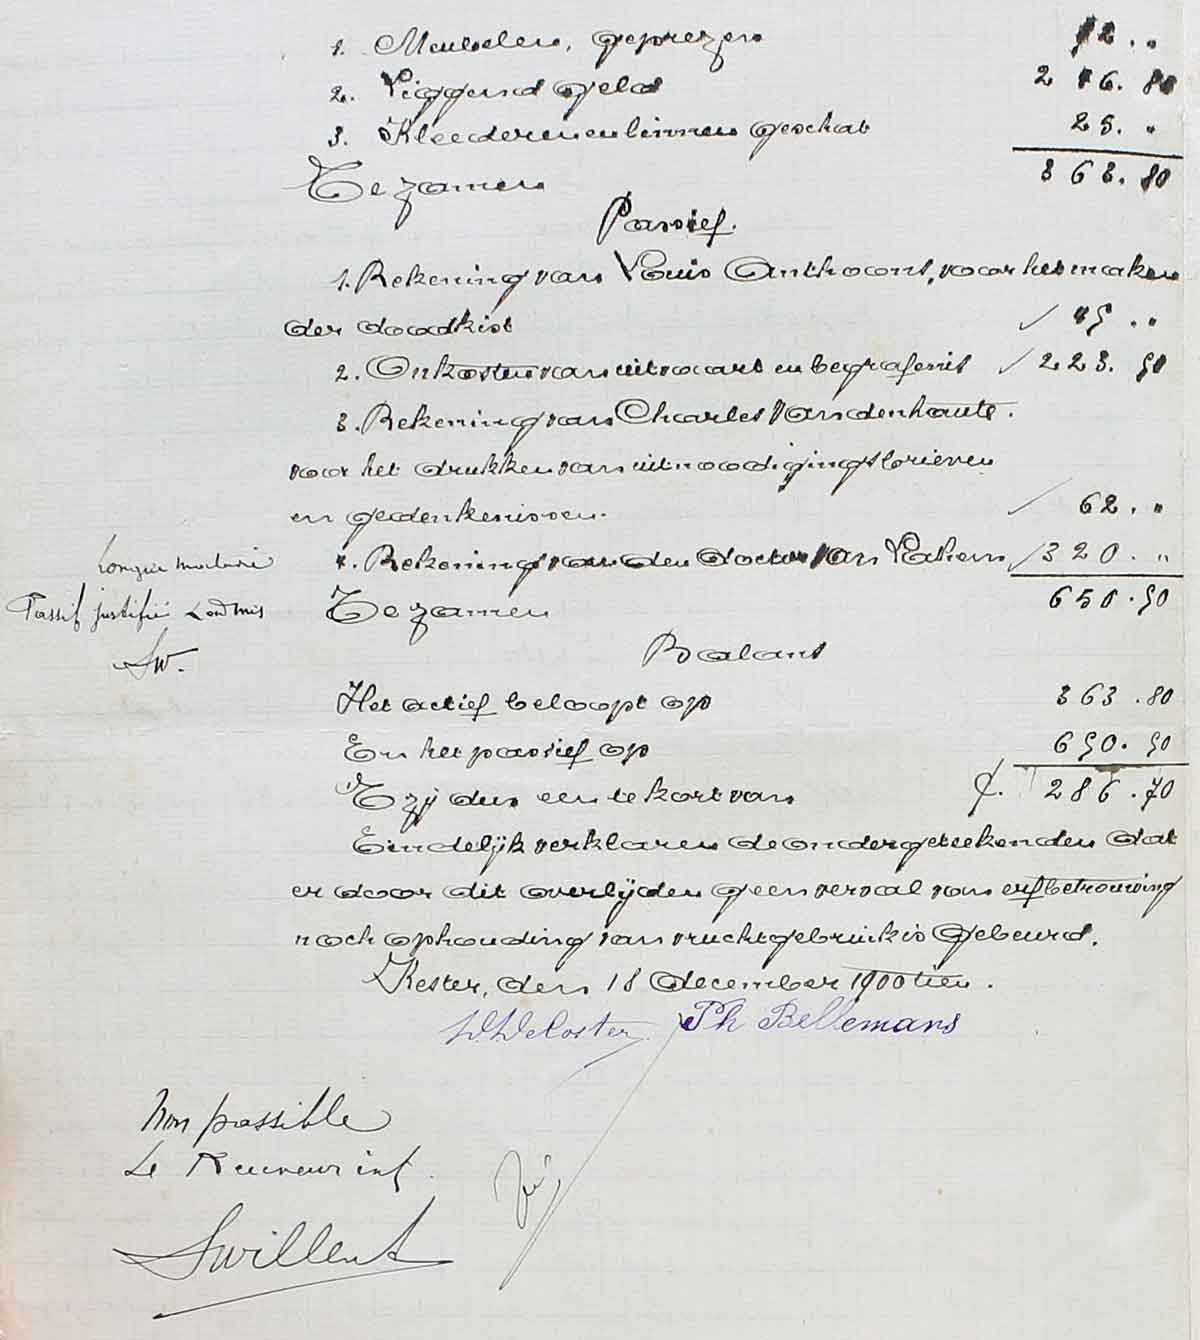 1. Meubelen, geprezen 12. "
2. Liggend geld 276. 80
3. Kleederen en linnen geschat 25. "
Te zamen 363. 80
Passief.
1. Rekening van Louis Anthoons, voor het maken
der doodkist 45 . "
2. Onkosten van uitvaart en begrafenis 223. 50
3. Rekening van Charles Vandenhaute.
voor het drukken van uitnoodigingsbrieven
en gedenkenissen. 62. "
4. Rekening van den doctor Van 320. "
Longue maladie
Te zamen 650.50
Passif justifié admis
Sw.
Balans
Het actief beloopt op 363 .80
En het passief op 650.50
'T zij dus een te kort van f. 286 .70
Eindelijk verklaren de ondergeteekenden dat
er door dit overlijden geen verval van erfbetrouwing
noch ophouding van vruchtgebruik is gebeurd.
Kester, den 18 december 1900tien.
D. DeCoster Ph Bellemans
Non passible
Le Receveur int.
Swillent